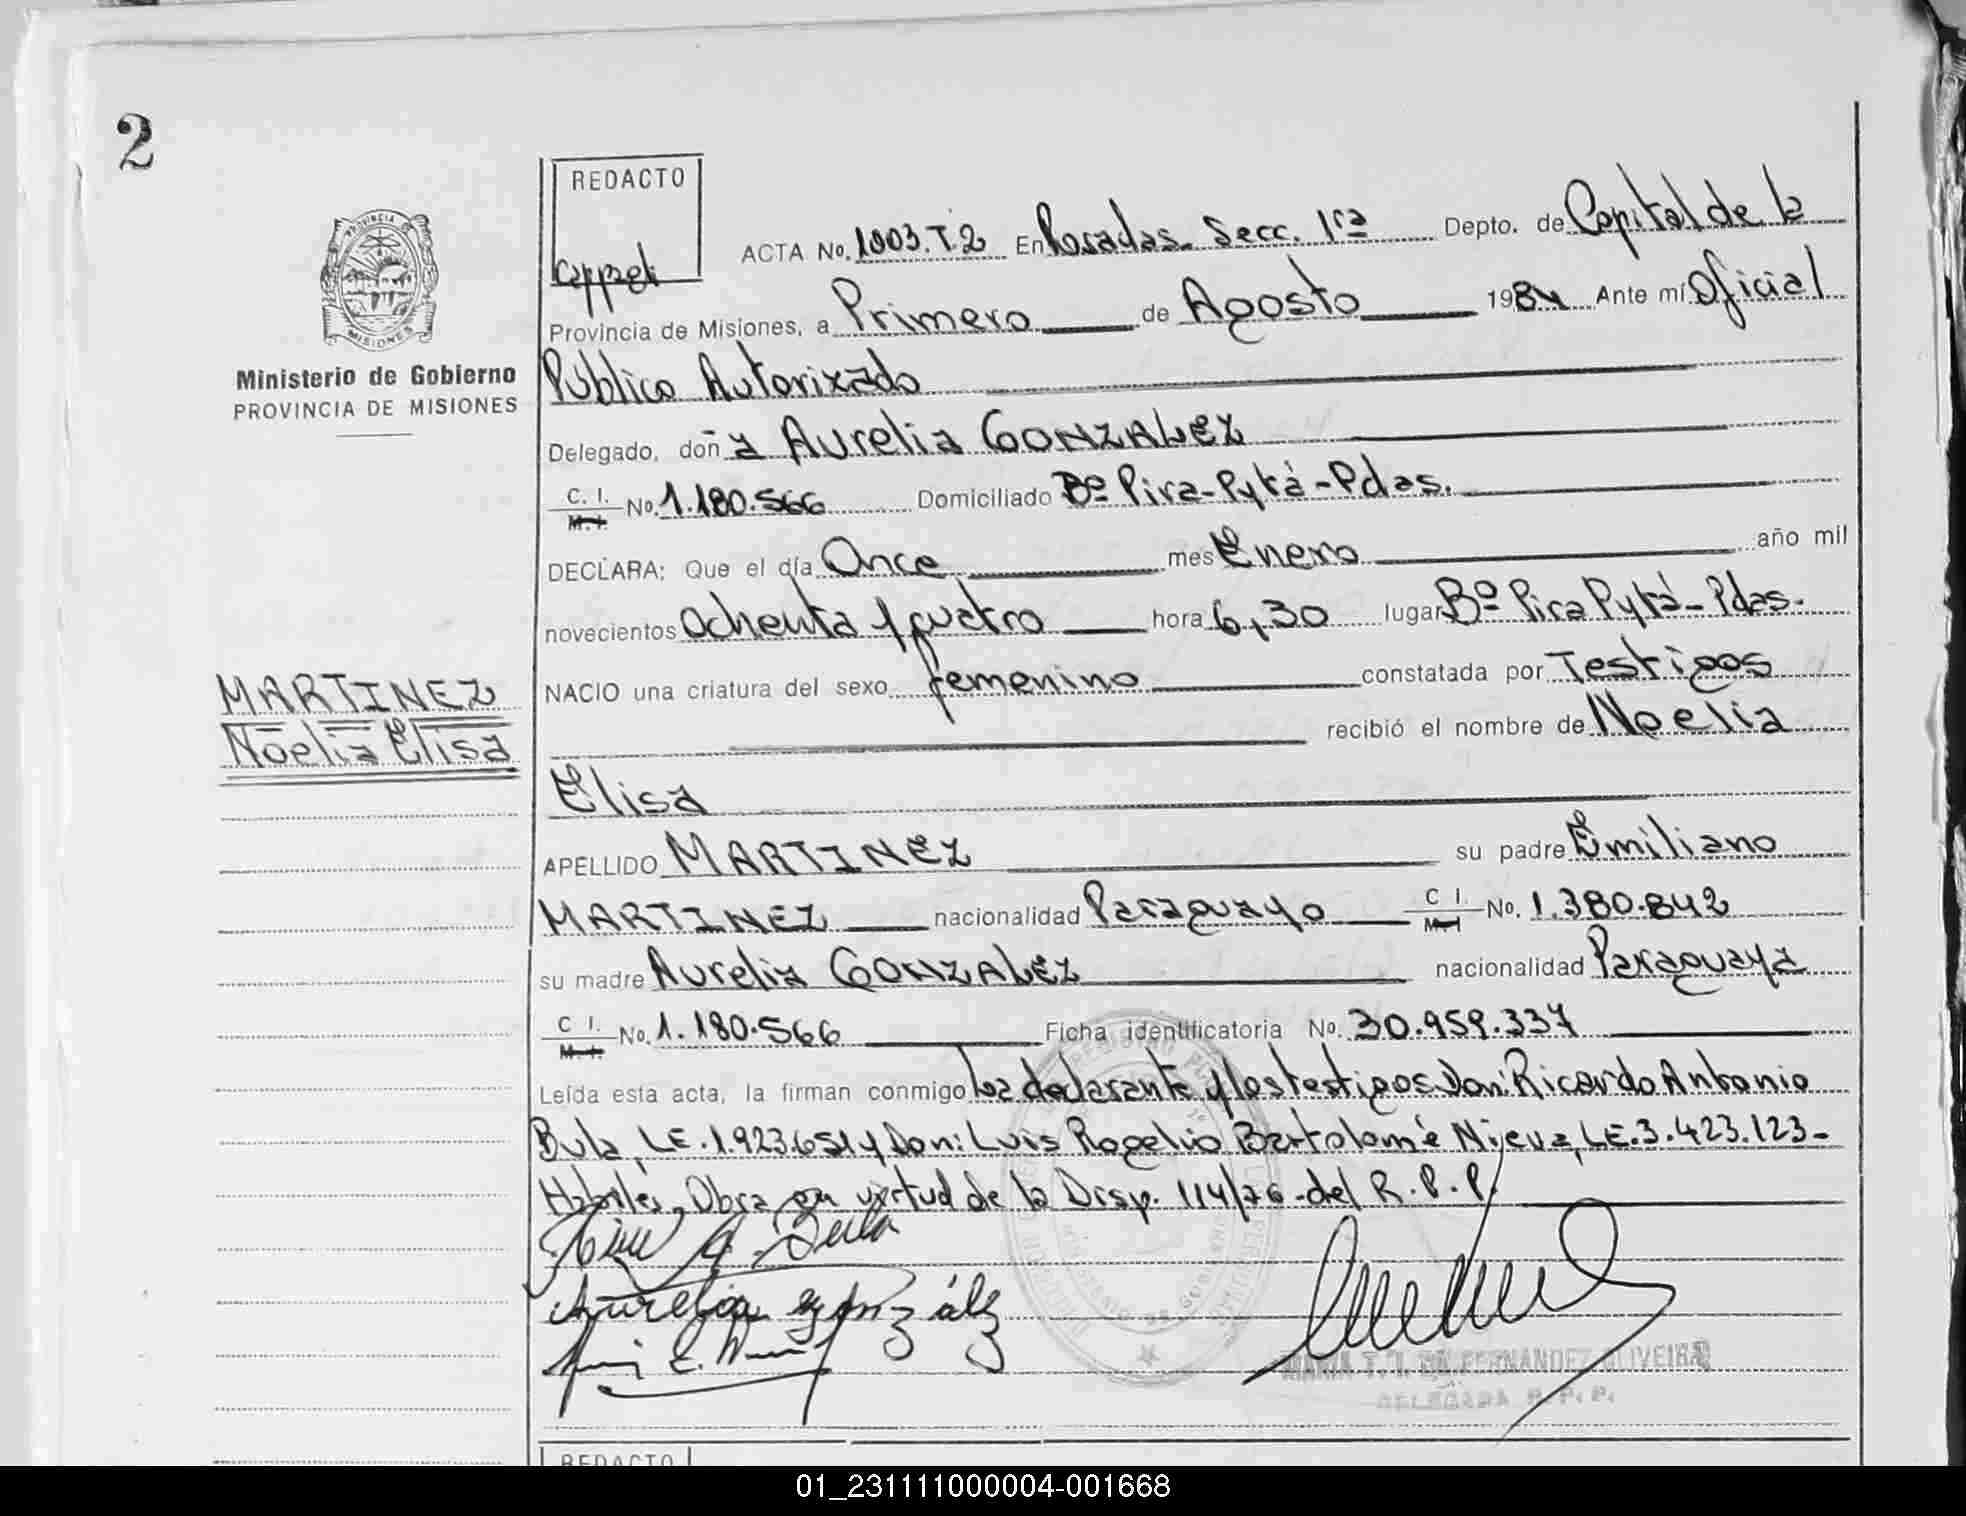 2
REDACTO
ACTA No. 1003.T.2 En Posadas. Secc. 1ra Depto. de Capital de la
Provincia de Misiones, a Primero de Agosto 1984 Ante mí Oficial
Público Autorizado
PROVINCIA
MISIONES
Ministerio de Gobierno
PROVINCIA DE MISIONES
Delegado, doña Aurelia GONZALEZ
C. I. M. I. No. 1.180.566 Domiciliado Bº Pira-Pytá-Pdas.
DECLARA: Que el día Once mes Enero año mil
novecientos Ochenta y cuatro hora 6,30 lugar Bº Pira Pytá-Pdas.
NACIO una criatura del sexo femenino constatada por Testigos
recibió el nombre de Noelia
MARTINEZ
Noelia Elisa
Elisa
APELLIDO MARTINEZ su padre Emiliano
MARTINEZ nacionalidad Paraguayo C I. M. I No. 1.380.842
su madre Aurelia GONZALEZ nacionalidad Paraguaya
C I. M. I. No. 1.180.566 Ficha identificatoria No. 30.959.337
Leída esta acta, la firman conmigo La declarante y los testigos Don: Ricardo Antonio
Bula, LE.1.923.651 y Don: Luis Rogelio Bartolomé Nieva, LE.3.423.123-
Hábiles. Obra en virtud de la Disp. 114/76-del R.P.P.
A. Bula
Aurelia González
MARIA T. I. DE FERNANDEZ OLIVEIRA
DELEGADA R. P. P.
REDACTO
01_231111000004-001668